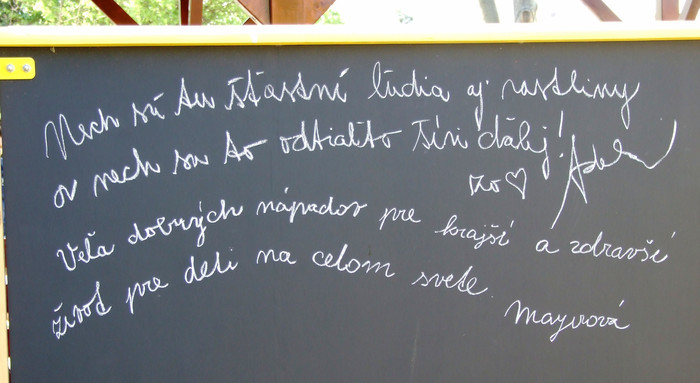 Nech sú tu šťastní ľudia aj rastliny
a nech sa to odtialto šíri ďalej! Adela
zo ♡
Veľa dobrých nápadov pre krajší a zdravší
život pre deti na celom svete.
Mayerová